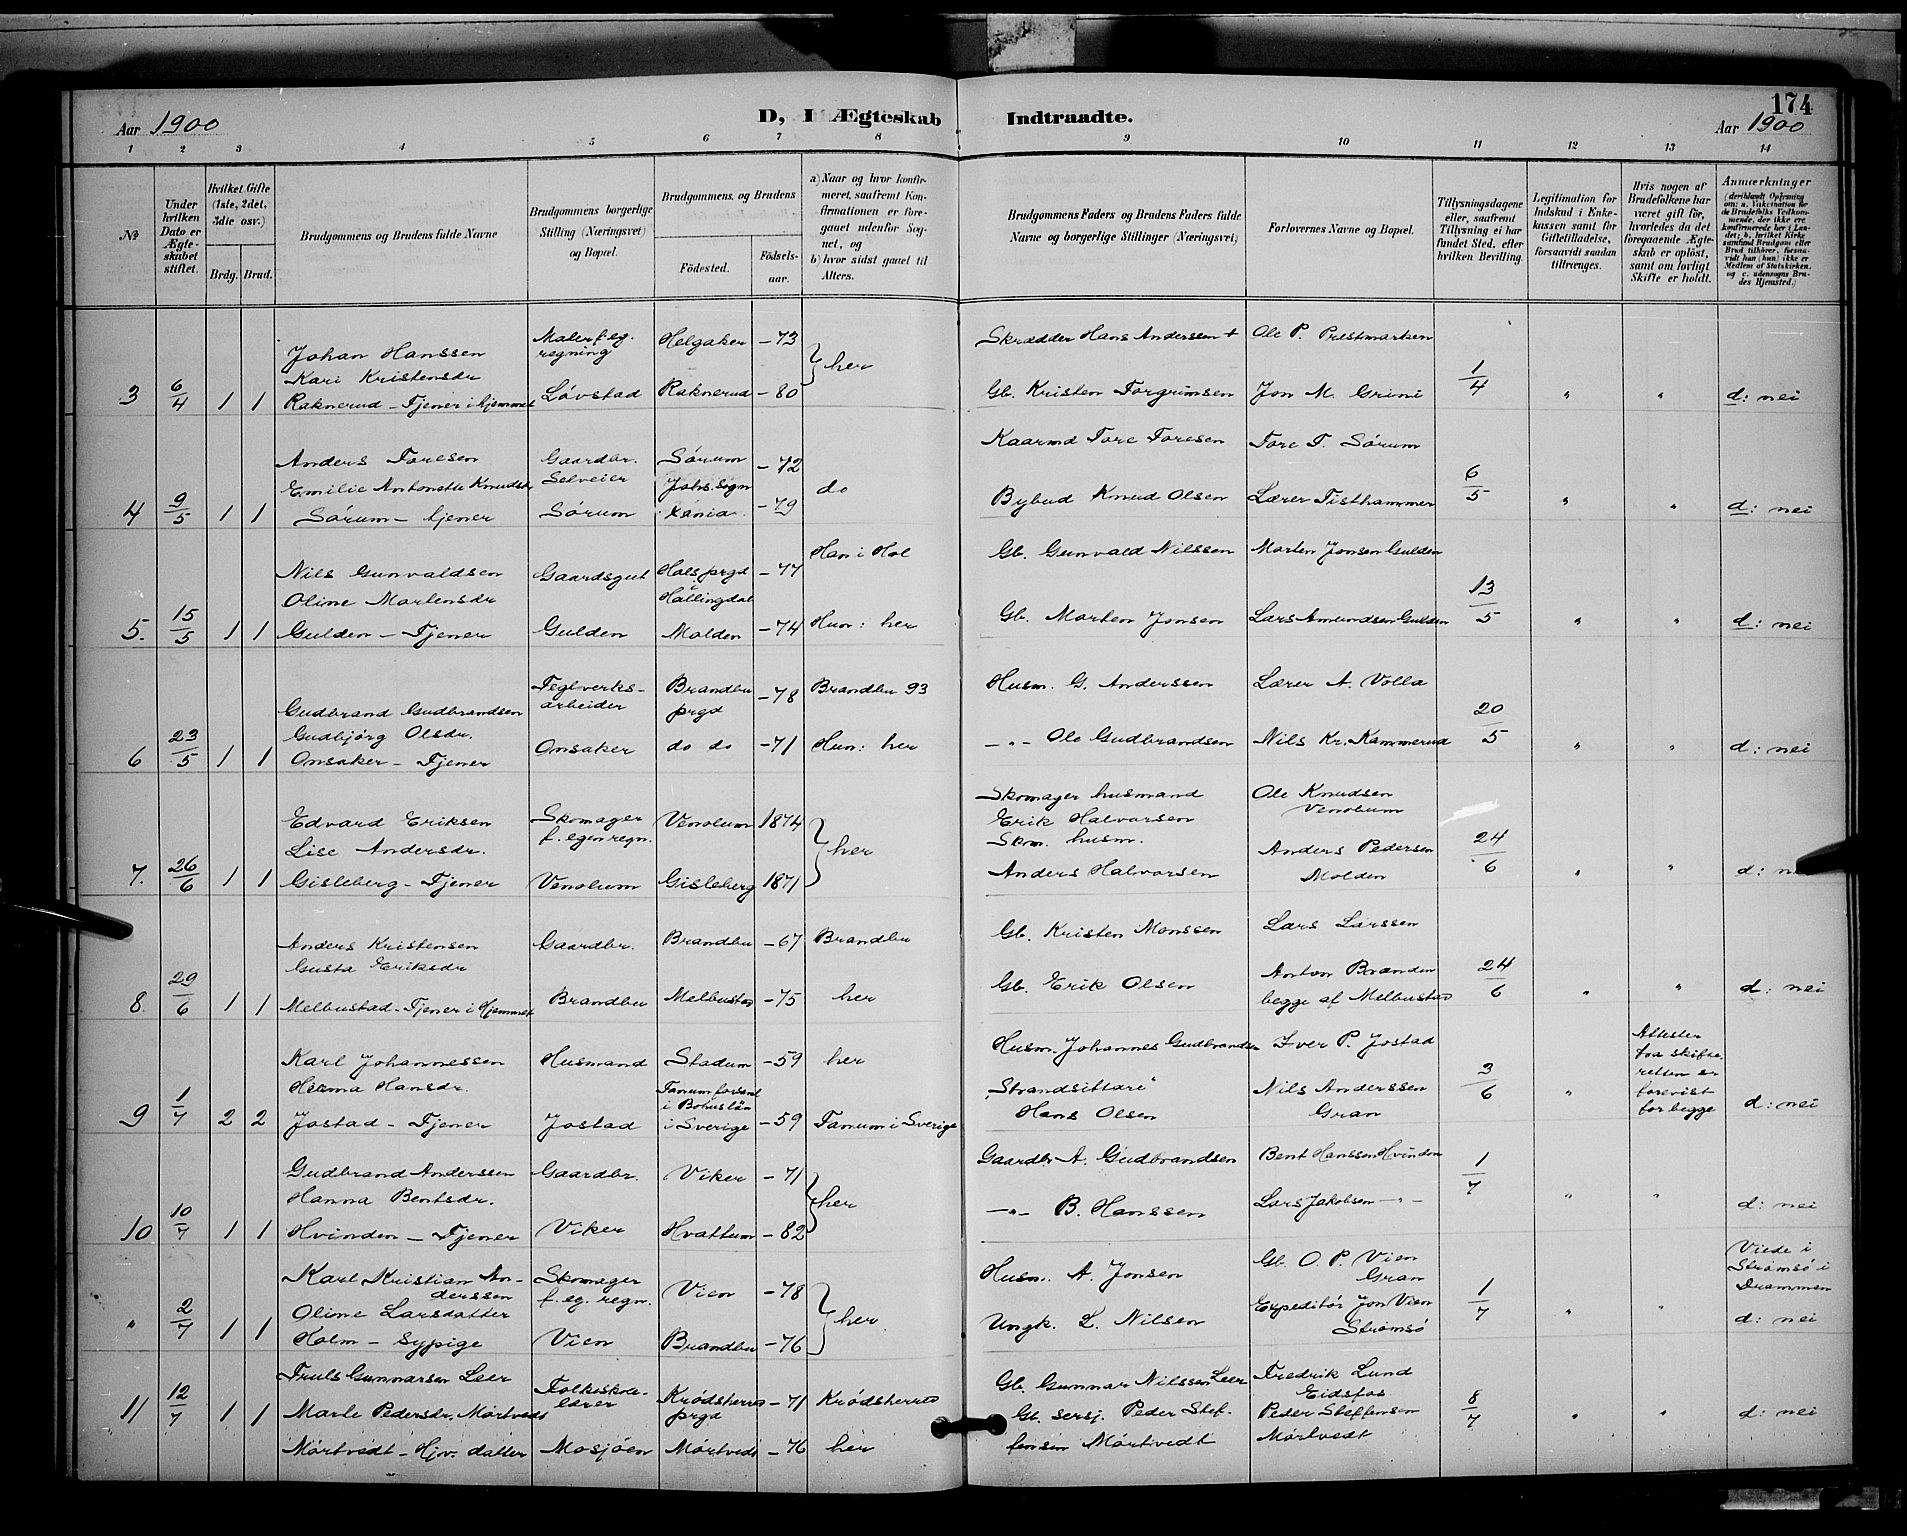 174
Aar 1900
D, I Ægteskab Indtraadte.
Aar 1900
1 2 3 4 5 6 7 8 9 10 11 12 13 14
No
Under hvilken Dato er Ægteskabet stiftet.
Hvilket Gifte (1ste, 2det, 3die osv.)
Brdg. Brud.
Brudgommens og Brudens fulde Navne
Brudgommens borgerlige Stilling (Næringsvei) og Bopæl.
Brudgommens og Brudens
Födested. Födselsaar.
a) Naar og hvor konfirmeret, saafremt Konfirmationen er foregaaet udenfor Sognet, og
b) hvor sidst gaaet til Alters.
Brudgommens Faders og Brudens Faders fulde Navne og borgerlige Stillinger (Næringsvei)
Forlovernes Navne og Bopæl.
Tillysningsdagene eller, saafremt Tillysning ei har fundet Sted, efter hvilken Bevilling.
Legitimation for Indskud i Enkekassen samt for Giftetilladelse, forsaavidt saadan tiltrænges.
Hvis nogen af Brudefolkene har været gift før, hvorledes da det foregaaende Ægteskab er opløst, samt om lovligt Skifte er holdt.
Anmærkninger (deriblandt Oplysning om: a. Vakcination for de Brudefolks Vedkommende, der ikke ere konfirmerede her i Landet; b. hvilket Kirkesamfund Brudgom eller Brud tilhører, forsaavidt han (hun) ikke er Medlem af Statskirken, og c. udensogns Brudes Hjemsted.)
Johan Hanssen Maler f. eg. regning Helgaker -73 } her Skrædder Hans Andersen + Ole P. Prestmarken
Kari Kristensdr
3 6/4 1 1 Raknerud - Tjener i hjemmet Løvstad Raknerud -80 Gb. Kristen Torgrimsen Jon M. Grini 1/4 " " d: nei
Anders Toresen Gaardbr. Selveier Sørum -72 do Kaarmd Tore Toresen Tore T. Sørum
Emilie Antonette Knudsdr Johs. sogn
4 9/5 1 1 Sørum - tjener Sørum Xania -79 Bybud Knud Olsen Lærer Tisthammer 6/5 " " d: nei
Nils Gunvaldsen Gaardsgut Hols prgd i Hallingdal -77 Han i Hol Gb. Gunvald Nilssen Morten Jonsen Gulden
Oline Martensdr
5. 15/5 1 1 Gulden - Tjener Gulden Molden -74 Hun: her Gb. Morten Jonsen Lars Amundsen Gulden 13/5 " " d: nei
Gudbrand Gudbrandsen Teglverksarbeider Brandbu prgd -78 Brandbu 93 Husm. G. Anderssen Lærer A. Volla
Gudbjörg Olsdr.
6 23/5 1 1 Onsaker - Tjener Onsaker do do -71 Hun: her -"- Ole Gudbrandsen Nils Kr. Kammerud 20/5 " " d: nei
Edvard Eriksen Skomager f. egen regn. Venolum 1874 } her Skomager husmand Erik Halvorsen Ole Knudsen Venolum
Lise Andersdr.
7. 26/6 1 1 Gisleberg - Tjener Venolum Gisleberg 1871 Skom. husm. Anders Halvorsen Anders Pedersen Molden 24/6 " " d: nei
Anders Kristensen Gaardbr. Brandbu -67 Brandbu Gb. Kristen Monssen Lars Larssen
Gusta Eriksdr
8 29/6 1 1 Melbustad - Tjener i Hjemmet Brandbu Melbustad -75 her Gb. Erik Olsen Anton Branden begge af Melbustad 24/6 " " d: nei
Karl Johannessen Husmand Stadum -59 her Husm. Johannes Gudbrandsen Iver P. Jostad
Helma Hansdr.
9 1/7 2 2 Jostad - Tjener Jostad Tanum forsaml i Bohuslän i Sverige -59 Tanum i Sverige "Strandsittare" Hans Olsen Nils Anderssen Gran 3/6 " Attester fra skifteretten er forevist for begge d: nei
Gudbrand Anderssen Gaardbr. Viker -71 } her Gaardbr A. Gudbrandsen Bent Hanssen Hvinden
Hanna Bentsdr.
10 10/7 1 1 Hvinden - Tjener Viker Hvattum -82 -"- B. Hanssen Lars Jakobsen -"- 1/7 " " d: nei
Karl Kristian Anderssen Skomager f. eg. regn. Vien -78 } her. Husm. A. Jonsen Gb. O. P. Vien Gran
Oline Larsdatter
" 2/7 1 1 Holm - Sypige Vien Brandbu -76 Ungk. L. Nilsen Expeditør Jon Vien Strømsø 1/7 " " Viede i Strømsø i Drammen d: nei
Truls Gunnarsen Leer Folkeskolelærer Krødsherreds prgd -71 Krødsherred Gb. Gunnar Nilssen Leer Fredrik Lund Eidsfos
11 12/7 1 1 Marte Pedersdr. Mörtvedt 8/7 " " d: nei
Mörtvedt - Hjv. datter Mosjöen Mörtvedt -76 her Gb. sersj. Peder Steffensen Mörtvedt Peder Steffensen Mörtvedt